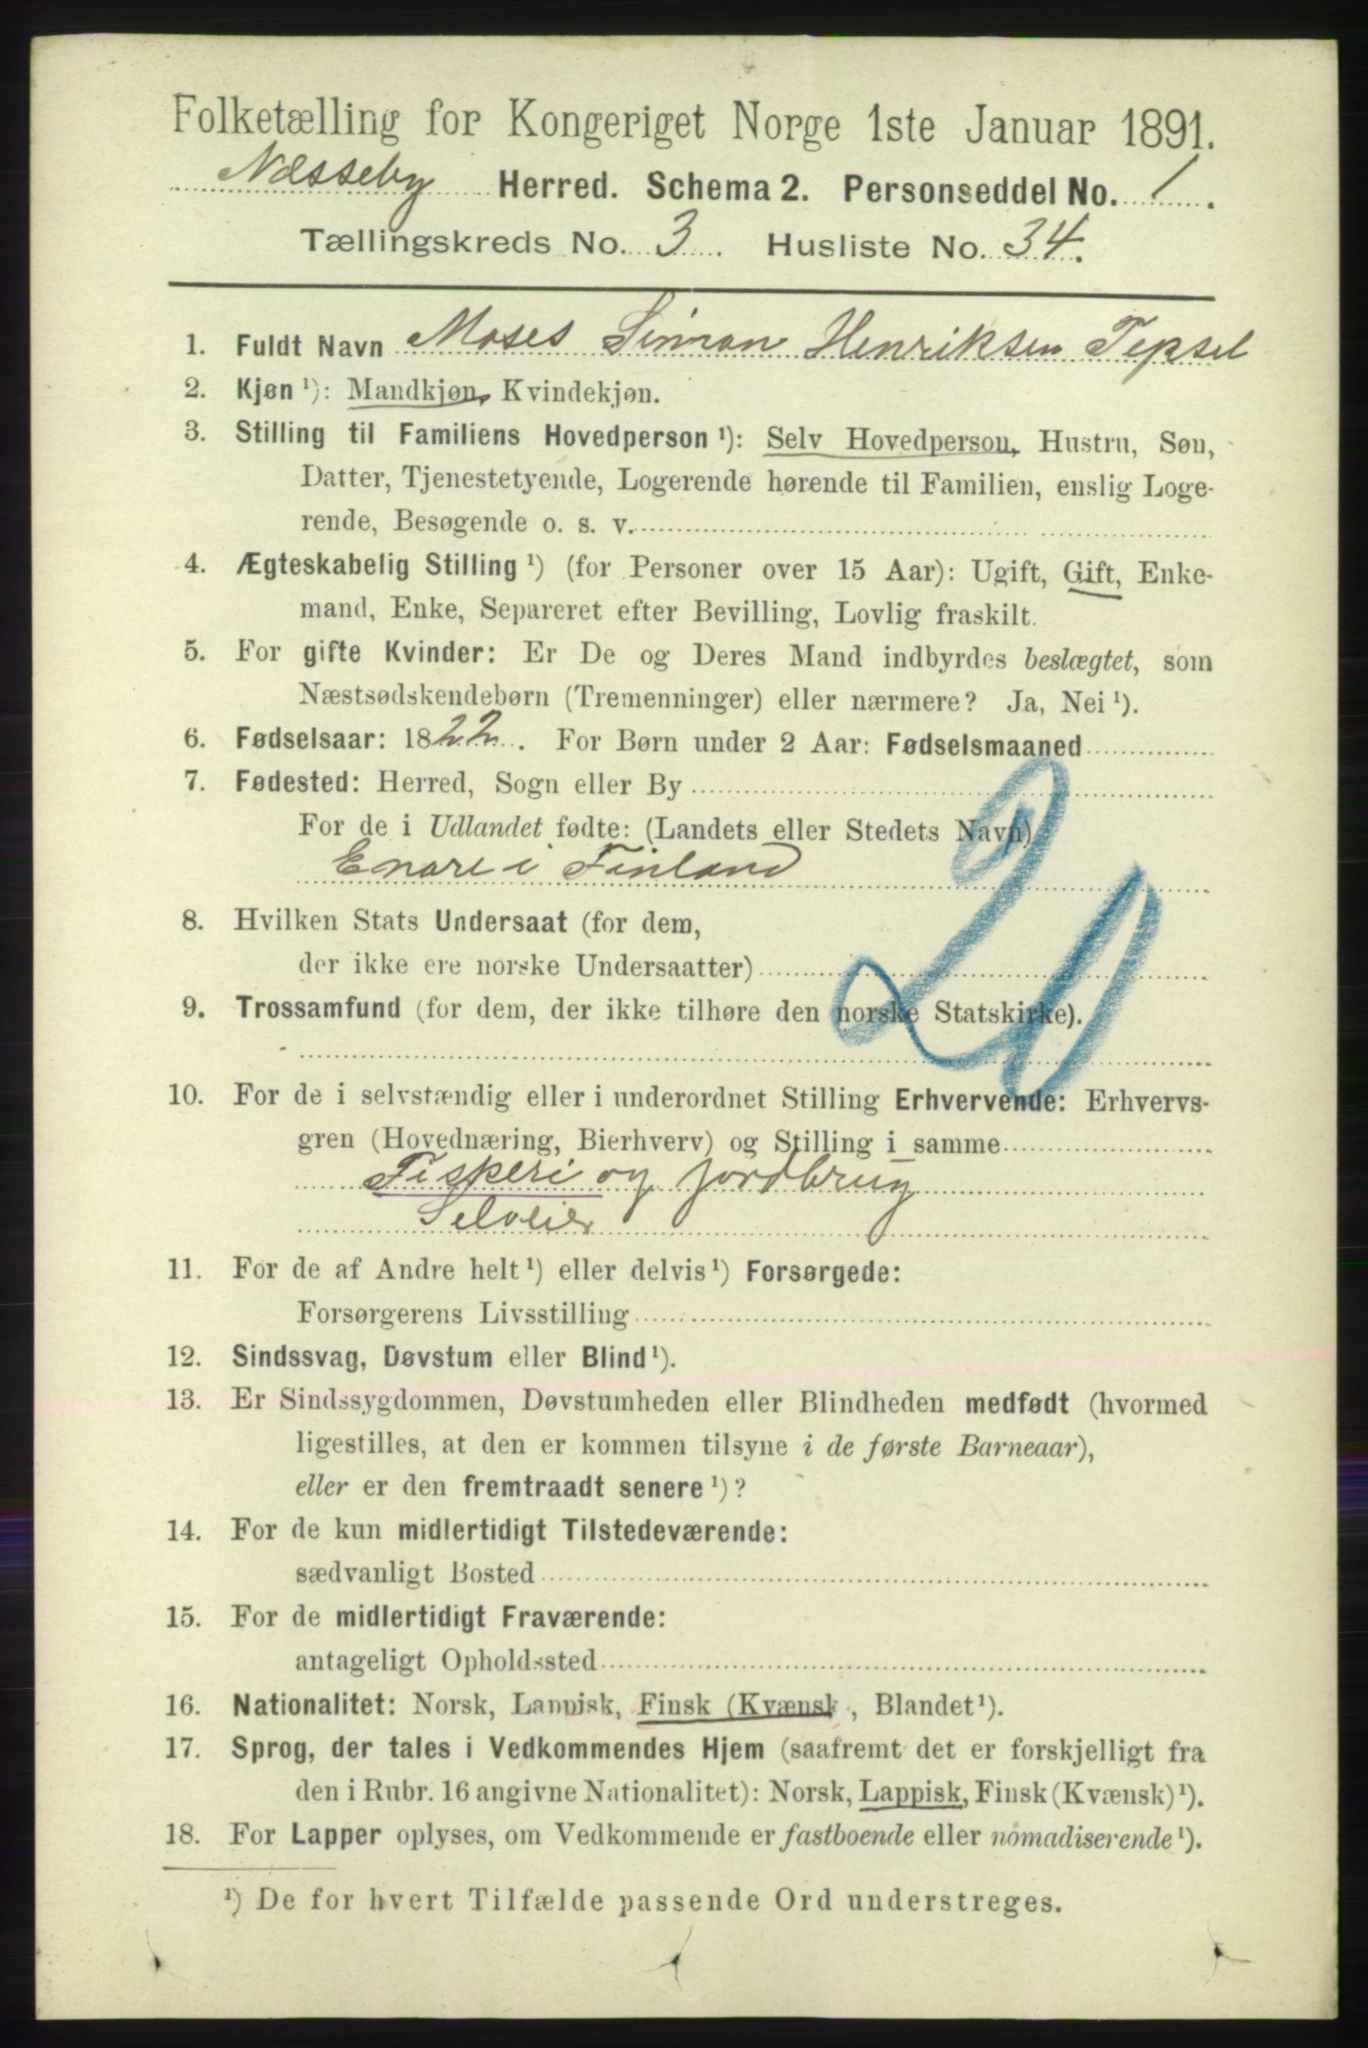 Folketælling for Kongeriget Norge 1ste Januar 1891.
Næsseby Herred. Schema 2. Personseddel No. 1.
Tællingskreds No. 3. Husliste No. 34.
1. Fuldt Navn Moses Simon Henriksen Tepsel
2. Kjøn ¹): Mandkjøn, Kvindekjøn.
3. Stilling til Familiens Hovedperson ¹): Selv Hovedperson, Hustru, Søn,
Datter, Tjenestetyende, Logerende hørende til Familien, enslig Loge-
rende, Besøgende o. s. v.
4. Ægteskabelig Stilling ¹) (for Personer over 15 Aar): Ugift, Gift, Enke-
mand, Enke, Separeret efter Bevilling, Lovlig fraskilt.
5. For gifte Kvinder: Er De og Deres Mand indbyrdes beslægtet, som
Næstsødskendebørn (Tremenninger) eller nærmere? Ja, Nei ¹).
6. Fødselsaar: 1822. For Børn under 2 Aar: Fødselsmaaned
7. Fødested: Herred, Sogn eller By
For de i Udlandet fødte: (Landets eller Stedets Navn)
Enare i Finland
20
8. Hvilken Stats Undersaat (for dem,
der ikke ere norske Undersaatter)
9. Trossamfund (for dem, der ikke tilhøre den norske Statskirke).
10. For de i selvstændig eller i underordnet Stilling Erhvervende: Erhvervs-
gren (Hovednæring, Bierhverv) og Stilling i samme
Fiskeri og jordbrug
Selveier
11. For de af Andre helt ¹) eller delvis ¹) Forsørgede:
Forsørgerens Livsstilling
12. Sindssvag, Døvstum eller Blind ¹).
13. Er Sindssygdommen, Døvstumheden eller Blindheden medfødt (hvormed
ligestilles, at den er kommen tilsyne i de første Barneaar),
eller er den fremtraadt senere ¹)?
14. For de kun midlertidigt Tilstedeværende:
sædvanligt Bosted
15. For de midlertidigt Fraværende:
antageligt Opholdssted
16. Nationalitet: Norsk, Lappisk, Finsk (Kvænsk, Blandet ¹).
17. Sprog, der tales i Vedkommendes Hjem (saafremt det er forskjelligt fra
den i Rubr. 16 angivne Nationalitet): Norsk, Lappisk, Finsk (Kvænsk) ¹).
18. For Lapper oplyses, om Vedkommende er fastboende eller nomadiserende ¹).
¹) De for hvert Tilfælde passende Ord understreges.